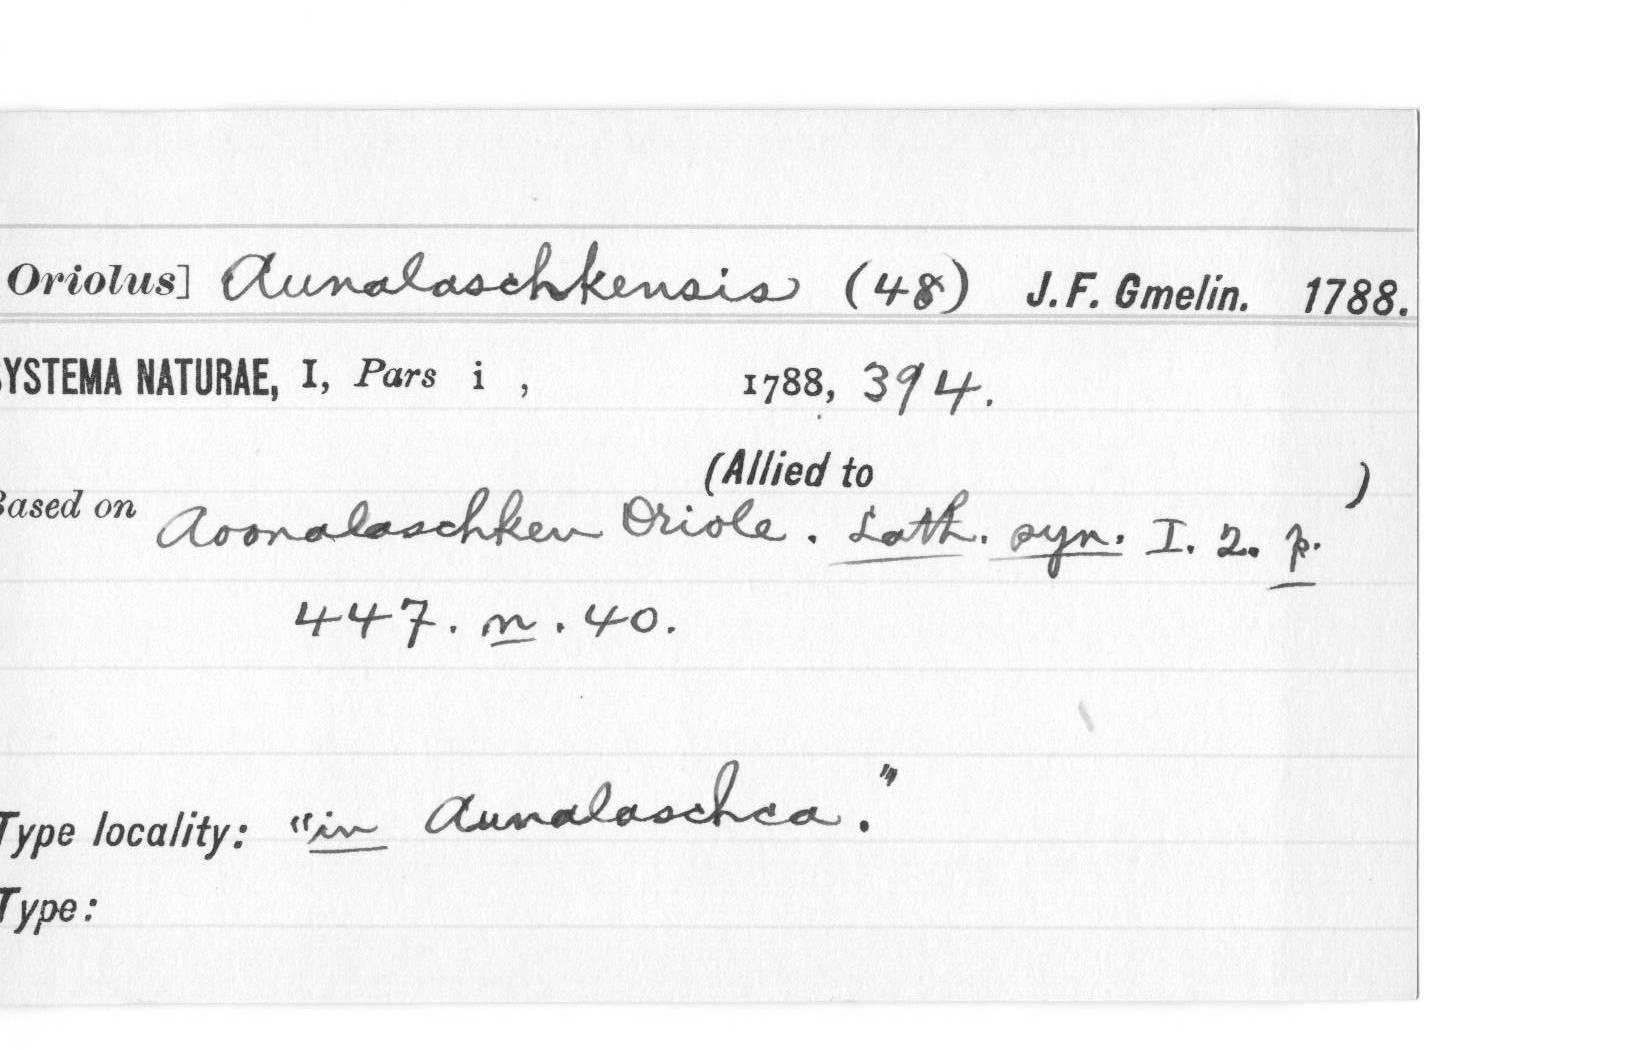 Oriolus] Aunalaschkensis (48) J. F. Gmelin. 1788.
SYSTEMA NATURAE, I, Pars i , 1788, 394.
(Allied to )
Based on Aoonalaschken Oriole. Lath. syn. I. 2. p.
447. n. 40.
Type locality: "in Aunalaschca."
Type: